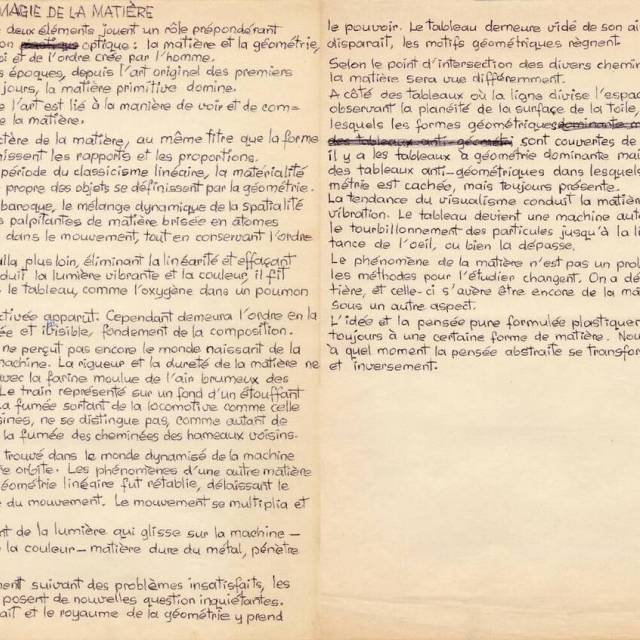 MAGIE DE LA MATIÈRE
deux éléments jouent un rôle prépondérant
on optique : la matière et la géométrie,
oi et de l'ordre crée par l'homme.
s époques, depuis l'art originel des premiers
jours, la matière primitive domine.
e l'art est lié à la manière de voir et de com=
e la matière.
ctère de la matière, au même titre que la forme
nissent les rapports et les proportions.
période du classicisme linéaire, la matérialité
propre des objets se définissent par la géométrie.
baroque, le mélange dynamique de la spatialité
s palpitantes de matière brisée en atômes
dans le mouvement, tout en conservant l'ordre
alla plus loin, éliminant la linéarité et effaçant
duit la lumière vibrante et la couleur, il fit
le tableau, comme l'oxygène dans un poumon
ctivée apparût. Cependant demeura l'ordre en la
ée et invisible, fondement de la composition.
ne perçut pas encore le monde naissant de la
machine. La rigueur et la dureté de la matière ne
avec la farine moulue de l'air brumeux des
Le train représenté sur un fond d'un étouffant
La fumée sortant de la locomotive comme celle
sines, ne se distingue pas, comme autant de
la fumée des cheminées des hameaux voisins.
trouvé dans le monde dynamisé de la machine
e orbite. Les phénomènes d'une autre matière
éométrie linéaire fut rétablie, délaissant le
e du mouvement. Le mouvement se multiplia et
nt de la lumière qui glisse sur la machine —
la couleur — matière dure du métal, pénètre
ment suivant des problèmes insatisfaits, les
posent de nouvelles question inquiétantes.
ait et le royaume de la géométrie y prend
le pouvoir. Le tableau demeure vidé de son ai
disparaît, les motifs géométriques règnent.
Selon le point d'intersection des divers chemin
la matière sera vue différemment.
A côté des tableaux où la ligne divise l'espac
observant la planéité de la surface de la toile,
lesquels les formes géométriques dominante
des tableaux anti-géométri sont couvertes de
il y a les tableaux à géométrie dominante mai
des tableaux anti-géométriques dans lesquels
métrie est cachée, mais toujours présente.
La tendance du visualisme conduit la matièr
vibration. Le tableau devient une machine aut
le tourbillonnement des particules jusqu'à la li
tance de l'oeil, ou bien la dépasse.
Le phénomène de la matière n'est pas un prob
les méthodes pour l'étudier changent. On a dé
tière, et celle-ci s'avère être encore de la ma
sous un autre aspect.
L'idée et la pensée pure formulée plastiquer
toujours à une certaine forme de matière. Nou
à quel moment la pensée abstraite se transfor
et inversement.